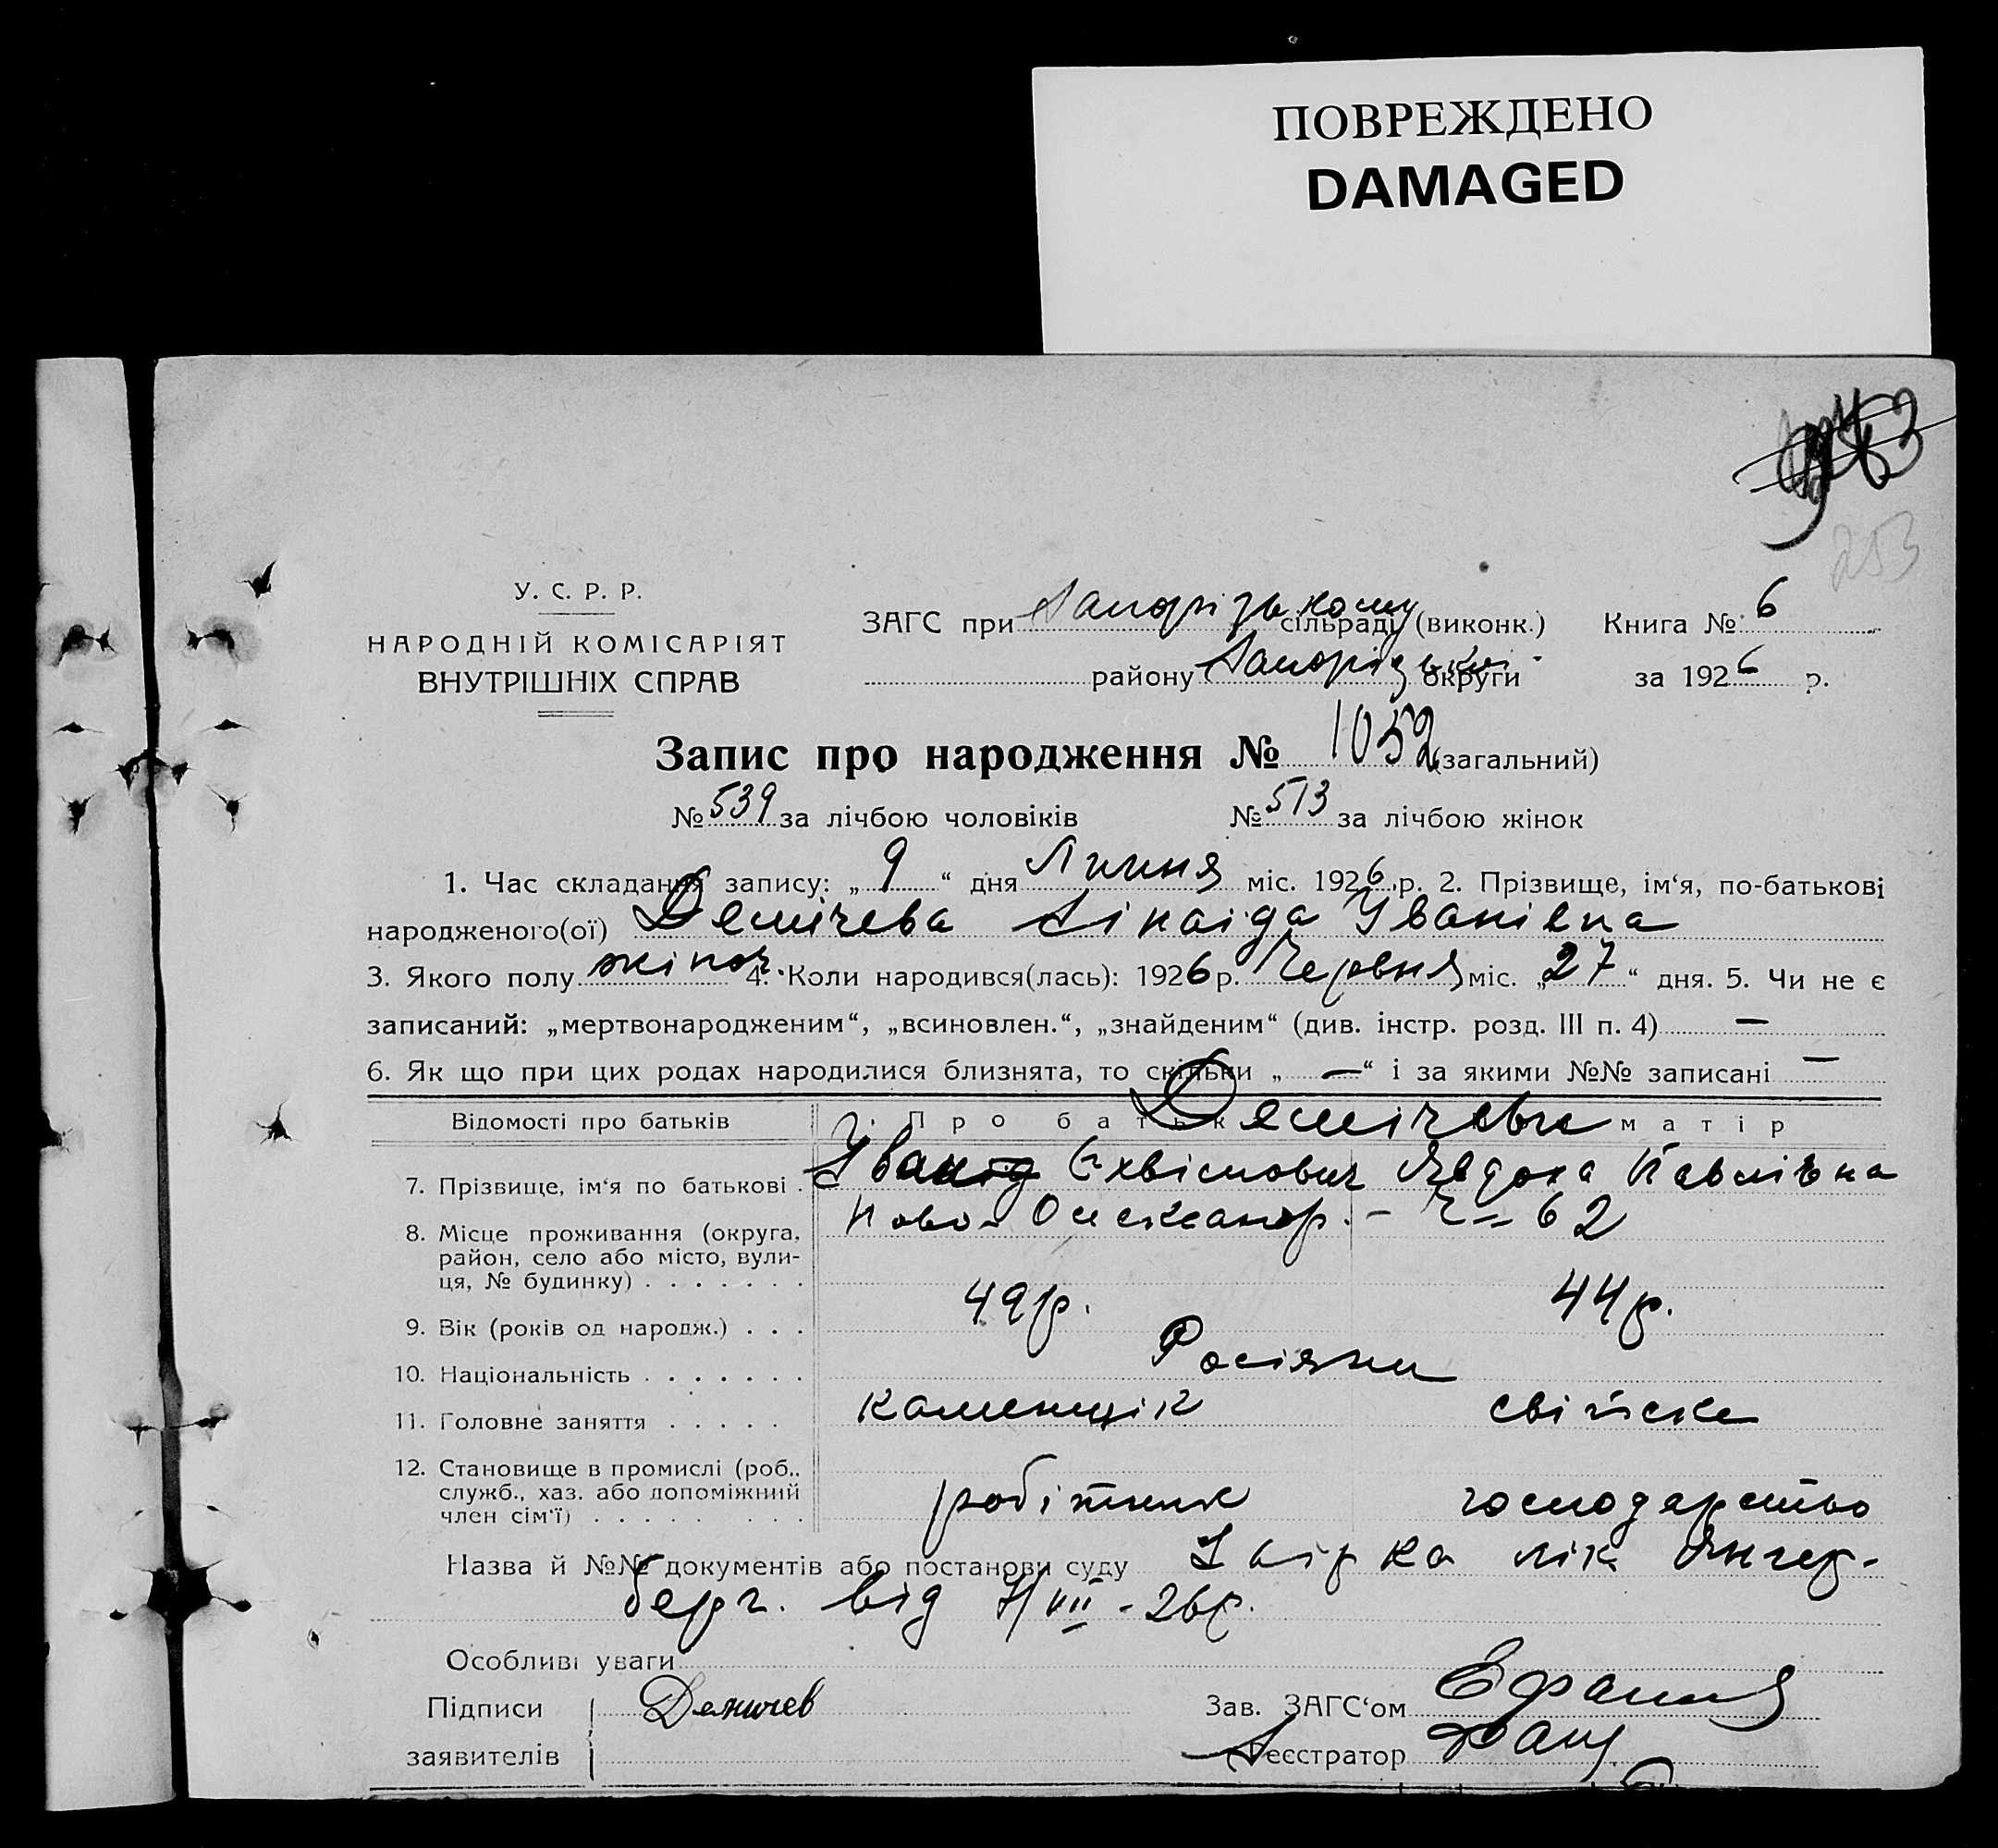 ПОВРЕЖДЕНО
DAMAGED
253
У. С. Р. Р.
НАРОДНІЙ КОМІСАРІЯТ
ВНУТРІШНІХ СПРАВ
ЗАГС при Запорізькому сільраді (виконк.) Книга № 6
району Запорізької округи за 1926 р.
Запис про народження № 1052 (загальний)
№ 539 за лічбою чоловіків № 513 за лічбою жінок
1. Час складання запису: „ 9 “ дня Липня міс. 1926 р. 2. Прізвище, ім‘я, по-батькові
народженого(ої) Демічева Зінаіда Іванівна
3. Якого полу жіноч. 4. Коли народився(лась): 1926 р. Червня міс. „ 27 “ дня. 5. Чи не є
записаний: „мертвонародженим“, „всиновлен.“, „знайденим“ (див. інстр. розд. III п. 4) —
6. Як що при цих родах народилися близнята, то скільки „ — “ і за якими №№ записані —
Відомості про батьків Про батька матір
Демічеви
7. Прізвище, ім‘я по батькові . Іван Євхвімович Явдоха Павлівна
8. Місце проживання (округа, район, село або місто, вулиця, № будинку) . . . . . . . Ново-Олександр. - 62
9. Вік (років од народж.) . . . 49 р. 44 р.
10. Національність . . . . . . . Росіяни
11. Головне заняття . . . . . каменщік свійске
12. Становище в промислі (роб., служб., хаз. або допоміжний член сім‘ї) . . . . . . . . робітник господарство
Назва й №№ документів або постанови суду Звірка лік Янгер-
берг. від 7/VII - 26 р.
Особливі уваги
Підписи Демичев Зав. ЗАГС‘ом
заявителів Реєстратор